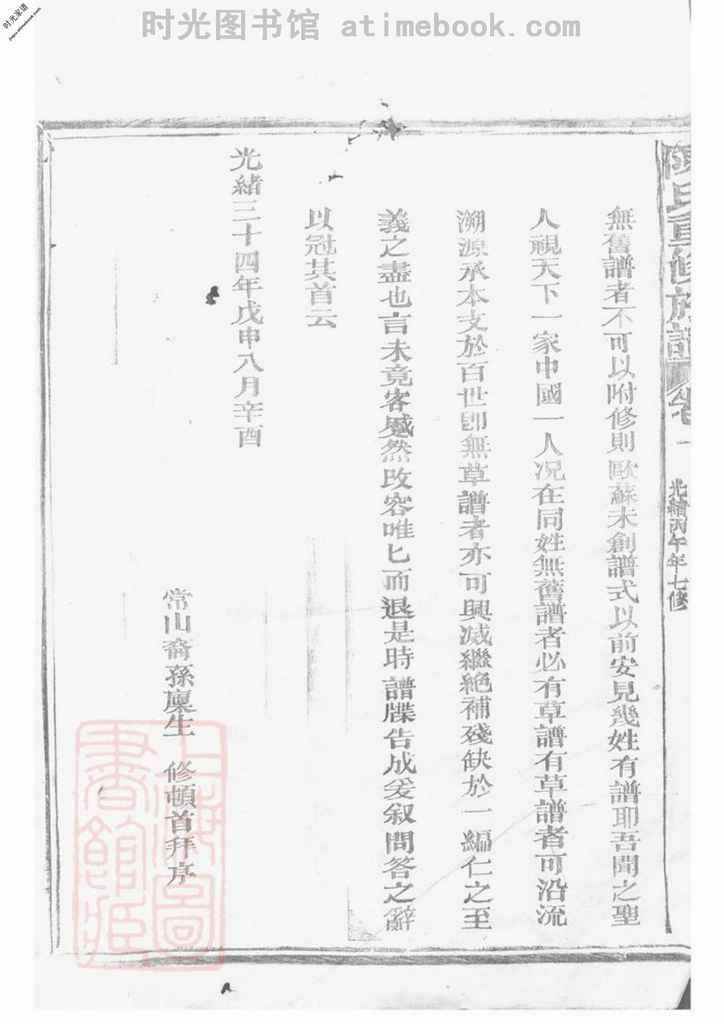 时光图书馆 atimebook.com
时光家谱
陳氏重修族譜 卷一 光緒丙午年七修
無舊譜者不可以附修則歐蘇未創譜式以前安見幾姓有譜耶吾聞之聖
人視天下一家中國一人况在同姓無舊譜者必有草譜有草譜者可沿流
溯源承本支於百世卽無草譜者亦可興滅繼絕補殘缺於一編仁之至
義之盡也言未竟客蹙然改容唯匕而退是時譜牒告成爰叙問答之辭
以冠其首云
光緒三十四年戊申八月辛酉
常山裔孫廩生 修頓首拜序
上海圖書館藏